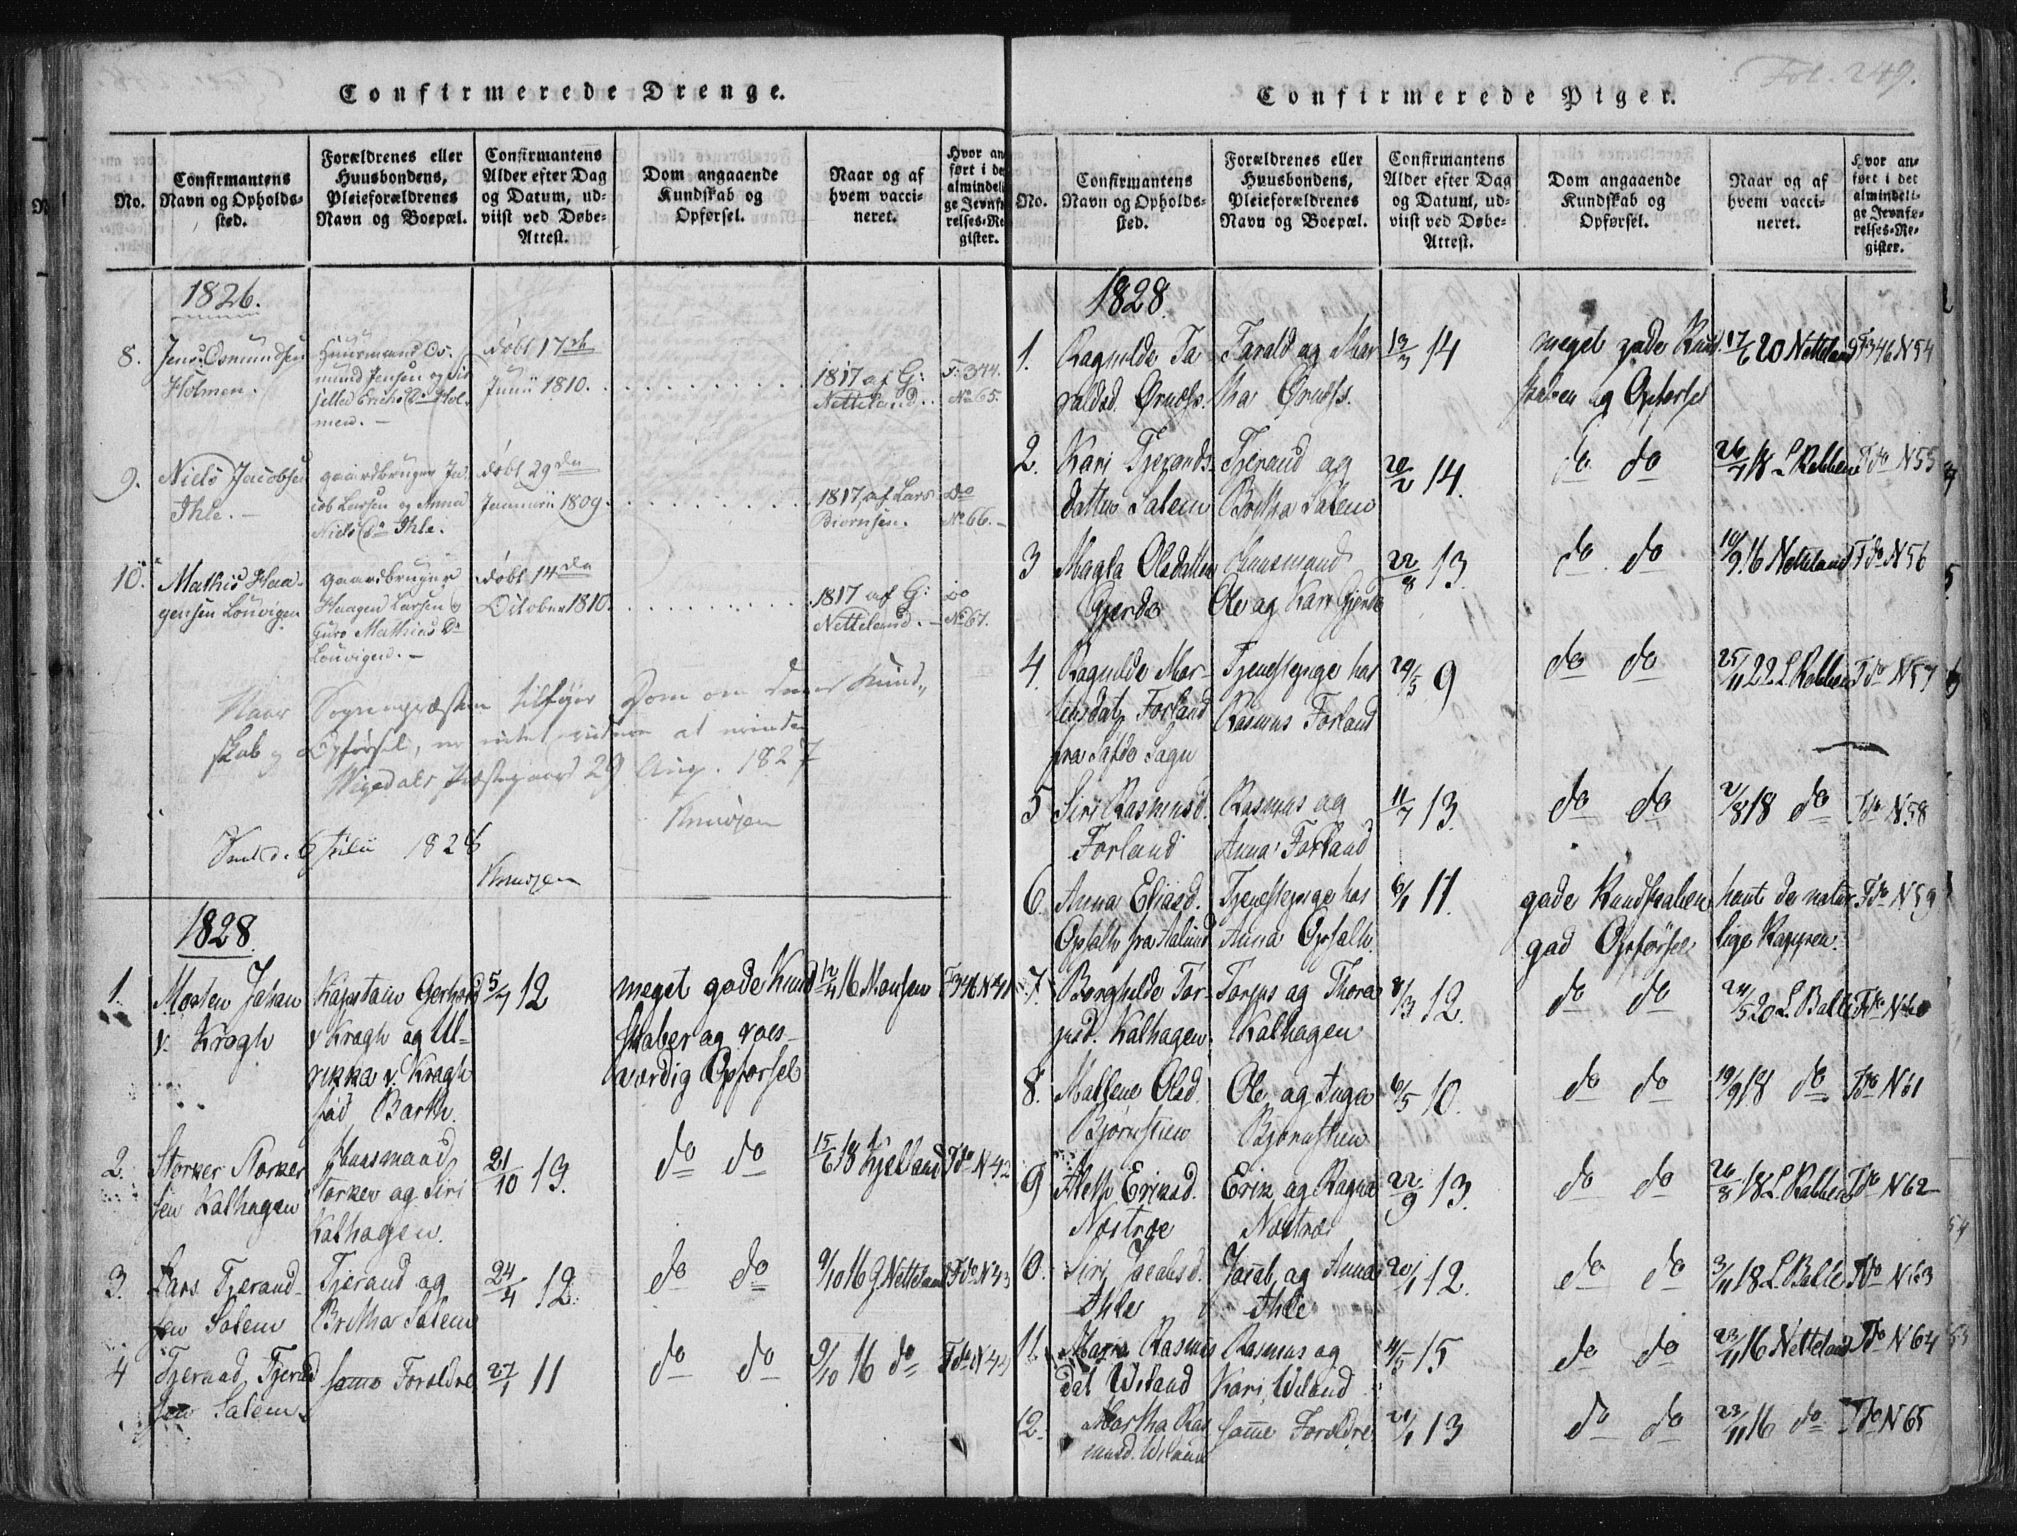 Confirmerede Drenge.
No.
Confirmantens
Navn og Opholds-
sted.
Forældrenes eller
Huusbondens,
Pleieforældrenes
Navn og Boepæl.
Confirmantens
Alder efter Dag
og Datum, ud-
viist ved Døbe-
Attest.
Dom angaaende
Kundskab og
Opførsel.
Naar og af
hvem vacci-
neret.
Hvor an
ført i de
almindeli
ge Jevnfø
relses-Re
gister.
1826.
8.
Jens Osmundsen
Holmen.
Huusmand Os-
mund Jensen og
Erichs Dr Hol-
men. -
døbt 17de
Junii 1810.
1817 af G:
Netteland.
F. 344.
No 65.
9.
Niels Jacobsen
Ihle. -
gaardbruger Ja-
cob Larsen og Anna
Niels Dr Ihle. -
døbt 29 de
Januarii 1809.
1817, af Lars
Biørnsen.
do
No 66. -
10.
Mathis Haa-
gensen Løuvigen
gaardbruger
Haagen Larsen &
Guro Mathias Dr
Løuvigen. -
døbt 14 de
October 1810.
1817 af G:
Netteland. -
do
No 67.
Naar Sognepræsten tilføjer Dom om denes Kund-
skab og Opførsel, er intet videre at erindre
Præstegaard 29 Aug. 1827
Knudsen
6 Julii 1828
Knudsen
1828.
1.
Morten Johan
v. Krogh
Kapitain Gerhard
v Krogh og Ul-
rikka v. Krogh
fød Barth.
5/7 12
meget gode Kund
skaber og roes-
værdig Opførsel
12/4 16 Monsen
F346 N 41
2.
Storker Storker
sen Kalhagen
Huusmand
Storker og Siri
Kalhagen.
21/10 13.
do do
15/6 18 Kjelland
F do N 42
3.
Lars Tjerand-
sen Salem
Tjerand og
Britha Salem
24/4 12.
do do
9/10 16 G. Netteland
F do N 43
4
Tjerand Tjerand
sen Salem
samme Forældre
27/1 11
do do
9/10 16 do
F do N 44
Fol. 249.
Confirmerede Piger.
No.
Confirmantens
Navn og Opholds-
sted.
Forældrenes eller
Huusbondens,
Pleieforældrenes
Navn og Boepæl.
Confirmantens
Alder efter Dag
og Datum, ud-
viist ved Døbe-
Attest.
Dom angaaende
Kundskab og
Opførsel.
Naar og af
hvem vacci-
neret.
Hvor an-
ført i det
almindeli-
ge Jevnfø-
relses-Re-
gister.
1828.
1.
Ragnilde Ta
raldsd. Ørnefs.
Tarald og Mar
tha Ørnefs.
13/3 14
meget gode Kund
skaber og Opførsel
17/6 20 Netteland
F346 N 54
2.
Kari Tjerands
datter Salem
Tjerand og
Britha Salem
20/2 14.
do do
26/7 18 L Rekkene
F do N 55
3
Magla Olsdatter
Gjerde
Huusmand
Ole og Kari Gjerde
22/8 13.
do do
10/9 16 Netteland
F do N 56
4.
Ragnilde Mor-
tensdatr. Forland
fra Sogn
Tjenestepige hos
Rasmus Forland
24/5 9
do do
25/11 22 L Rekkene
F do N 57
5
Siri Rasmusd.
Forland
Rasmus og
Anna Forland
11/7 13.
do do
2/8 18 do
F do N 58
6.
Anna Eliasd.
Opsalh fra Aalund
Tjenestepige hos
Anna Opsalh
6/1 11.
gode Kundskaber
god Opførsel
havt de natur
lige Kopper.
F do N 59
7.
Borghilde Tor-
jusd. Kalhagen.
Torjus og Thora
Kalhagen
8/3 12.
do do
24/5 20 L Balle
F do N 60
8.
Mallene Olsd.
Bjørnstien
Ole og Inga
Bjørnstien
6/5 10.
do do
19/9 18 do
F do N 61
9
Aleth Eriksd.
Nøstrøe
Erik og Ragna
Nøstrøe
22/9 13.
do do
26/8 18 L Rekkene
F do N 62
10.
Siri Jacobsd.
Ihle
Jacob og Anna
Ihle
20/1 12.
do do
3/11 18 L Balle
F do N 63
11.
Maria Rasmus
dat Wiland
Rasmus og
Kari Wiland
4/5 15
do do
23/11 16 Netteland
F do N 64
12.
Martha Ras
musd. Wiland
samme Forældre
21/1 13
do do
23/11 16 do
F do N 65